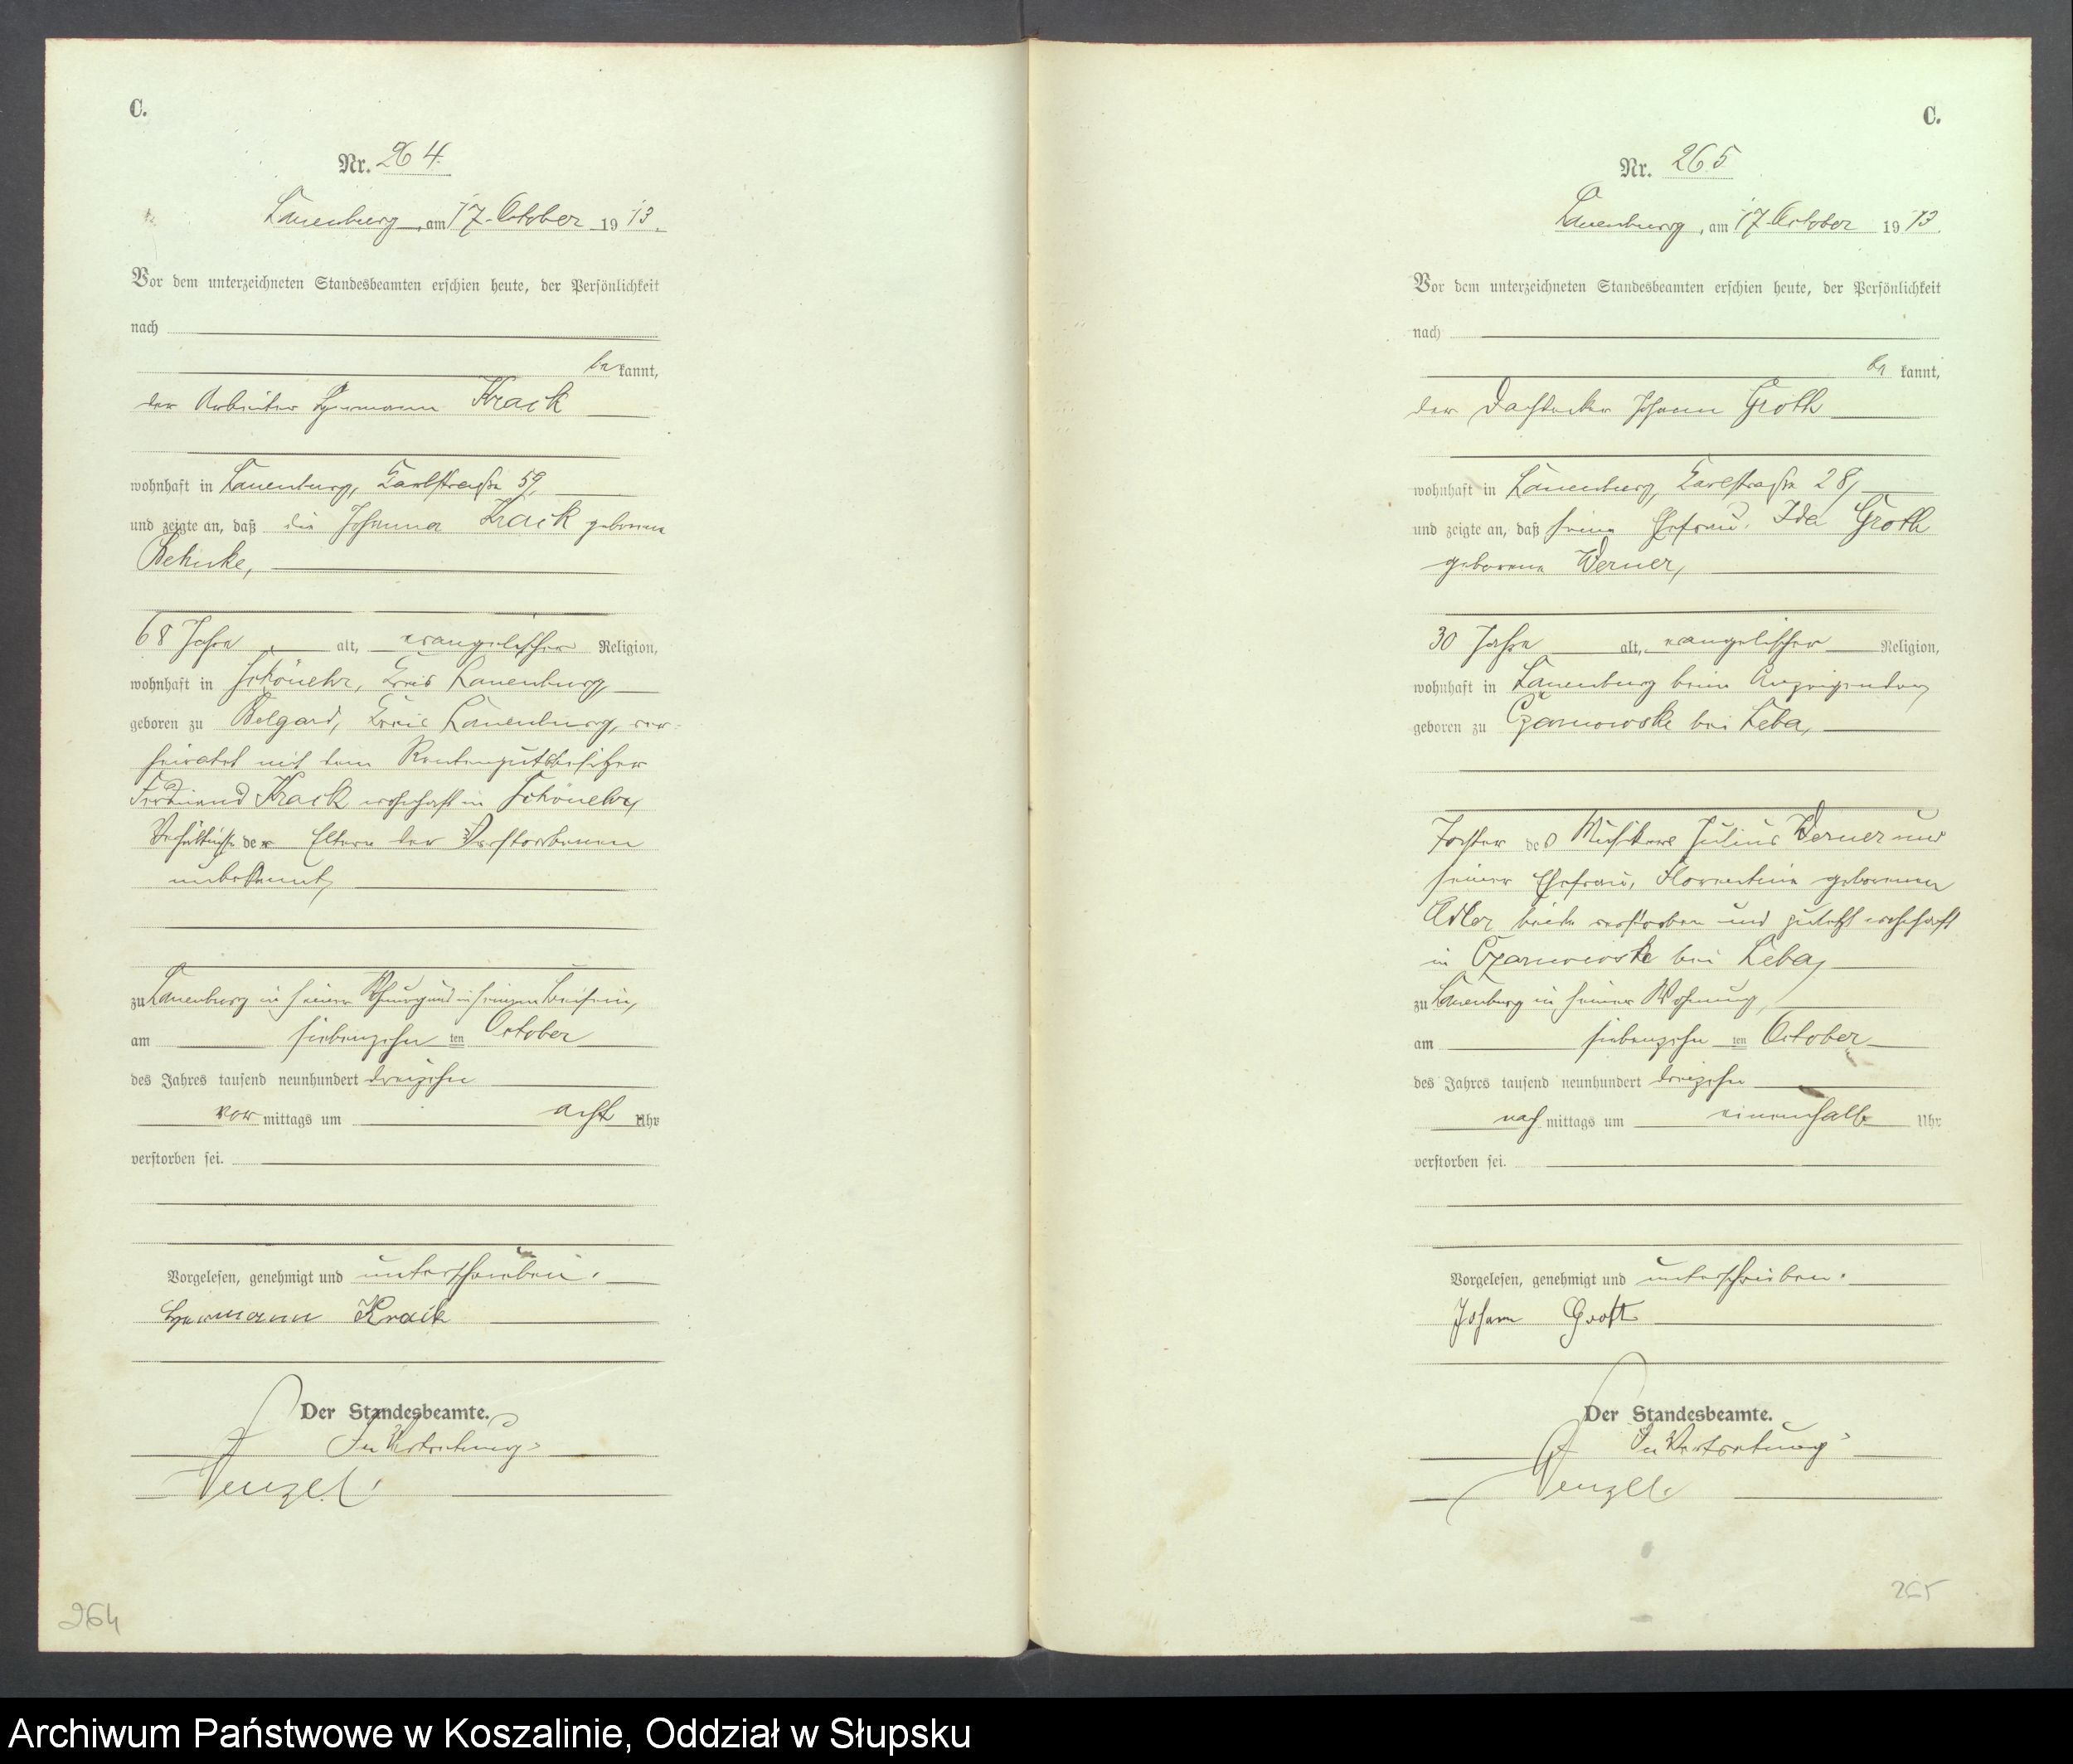 C.
Nr. 264.
Lauenburg, am 17. October 1913.
Vor dem unterzeichneten Standesbeamten erschien heute, der Persönlichkeit
nach
be kannt,
der Arbeiter Hermann Krack
wohnhaft in Lauenburg, Karlstraße 59,
und zeigte an, daß die Johanna Krack geborene
68 Jahre alt, evangelischer Religion,
wohnhaft in Schönehr, Kreis Lauenburg
geboren zu Belgard, Kreis Lauenburg, ver-
heiratet mit dem Rentengutsbesitzer
Ferdinand Krack wohnhaft in Schönehr,
Verhältnisse der Eltern der Verstorbenen
unbekannt,
zu Lauenburg in seiner Wohnung und in seinem Beisein,
am siebenzehn ten October
des Jahres tausend neunhundert dreizehn
vor mittags um acht Uhr
verstorben sei.
Vorgelesen, genehmigt und unterschrieben.
Hermann Krack
Der Standesbeamte.
In Vertretung:
Wenzel.
264
C.
Nr. 265
Lauenburg, am 17. October 1913.
Vor dem unterzeichneten Standesbeamten erschien heute, der Persönlichkeit
nach
be kannt,
der Dachdecker Johann Groth
wohnhaft in Lauenburg, Karlstraße 28,
und zeigte an, daß seine Ehefrau, Ida Groth
geborene Werner,
30 Jahre alt, evangelischer Religion,
wohnhaft in Lauenburg beim Anzeigenden,
geboren zu Czarnowske bei Leba,
Tochter des Musikers Julius Werner und
seiner Ehefrau, Florentine geborenen
Adler beide verstorben und zuletzt wohnhaft
in Czarnowske bei Leba,
zu Lauenburg in seiner Wohnung,
am siebenzehn ten October
des Jahres tausend neunhundert dreizehn
nach mittags um einenhalb Uhr
verstorben sei.
Vorgelesen, genehmigt und unterschrieben.
Johann Groth
Der Standesbeamte.
In Vertretung:
Wenzel.
265
Archiwum Państwowe w Koszalinie, Oddział w Słupsku